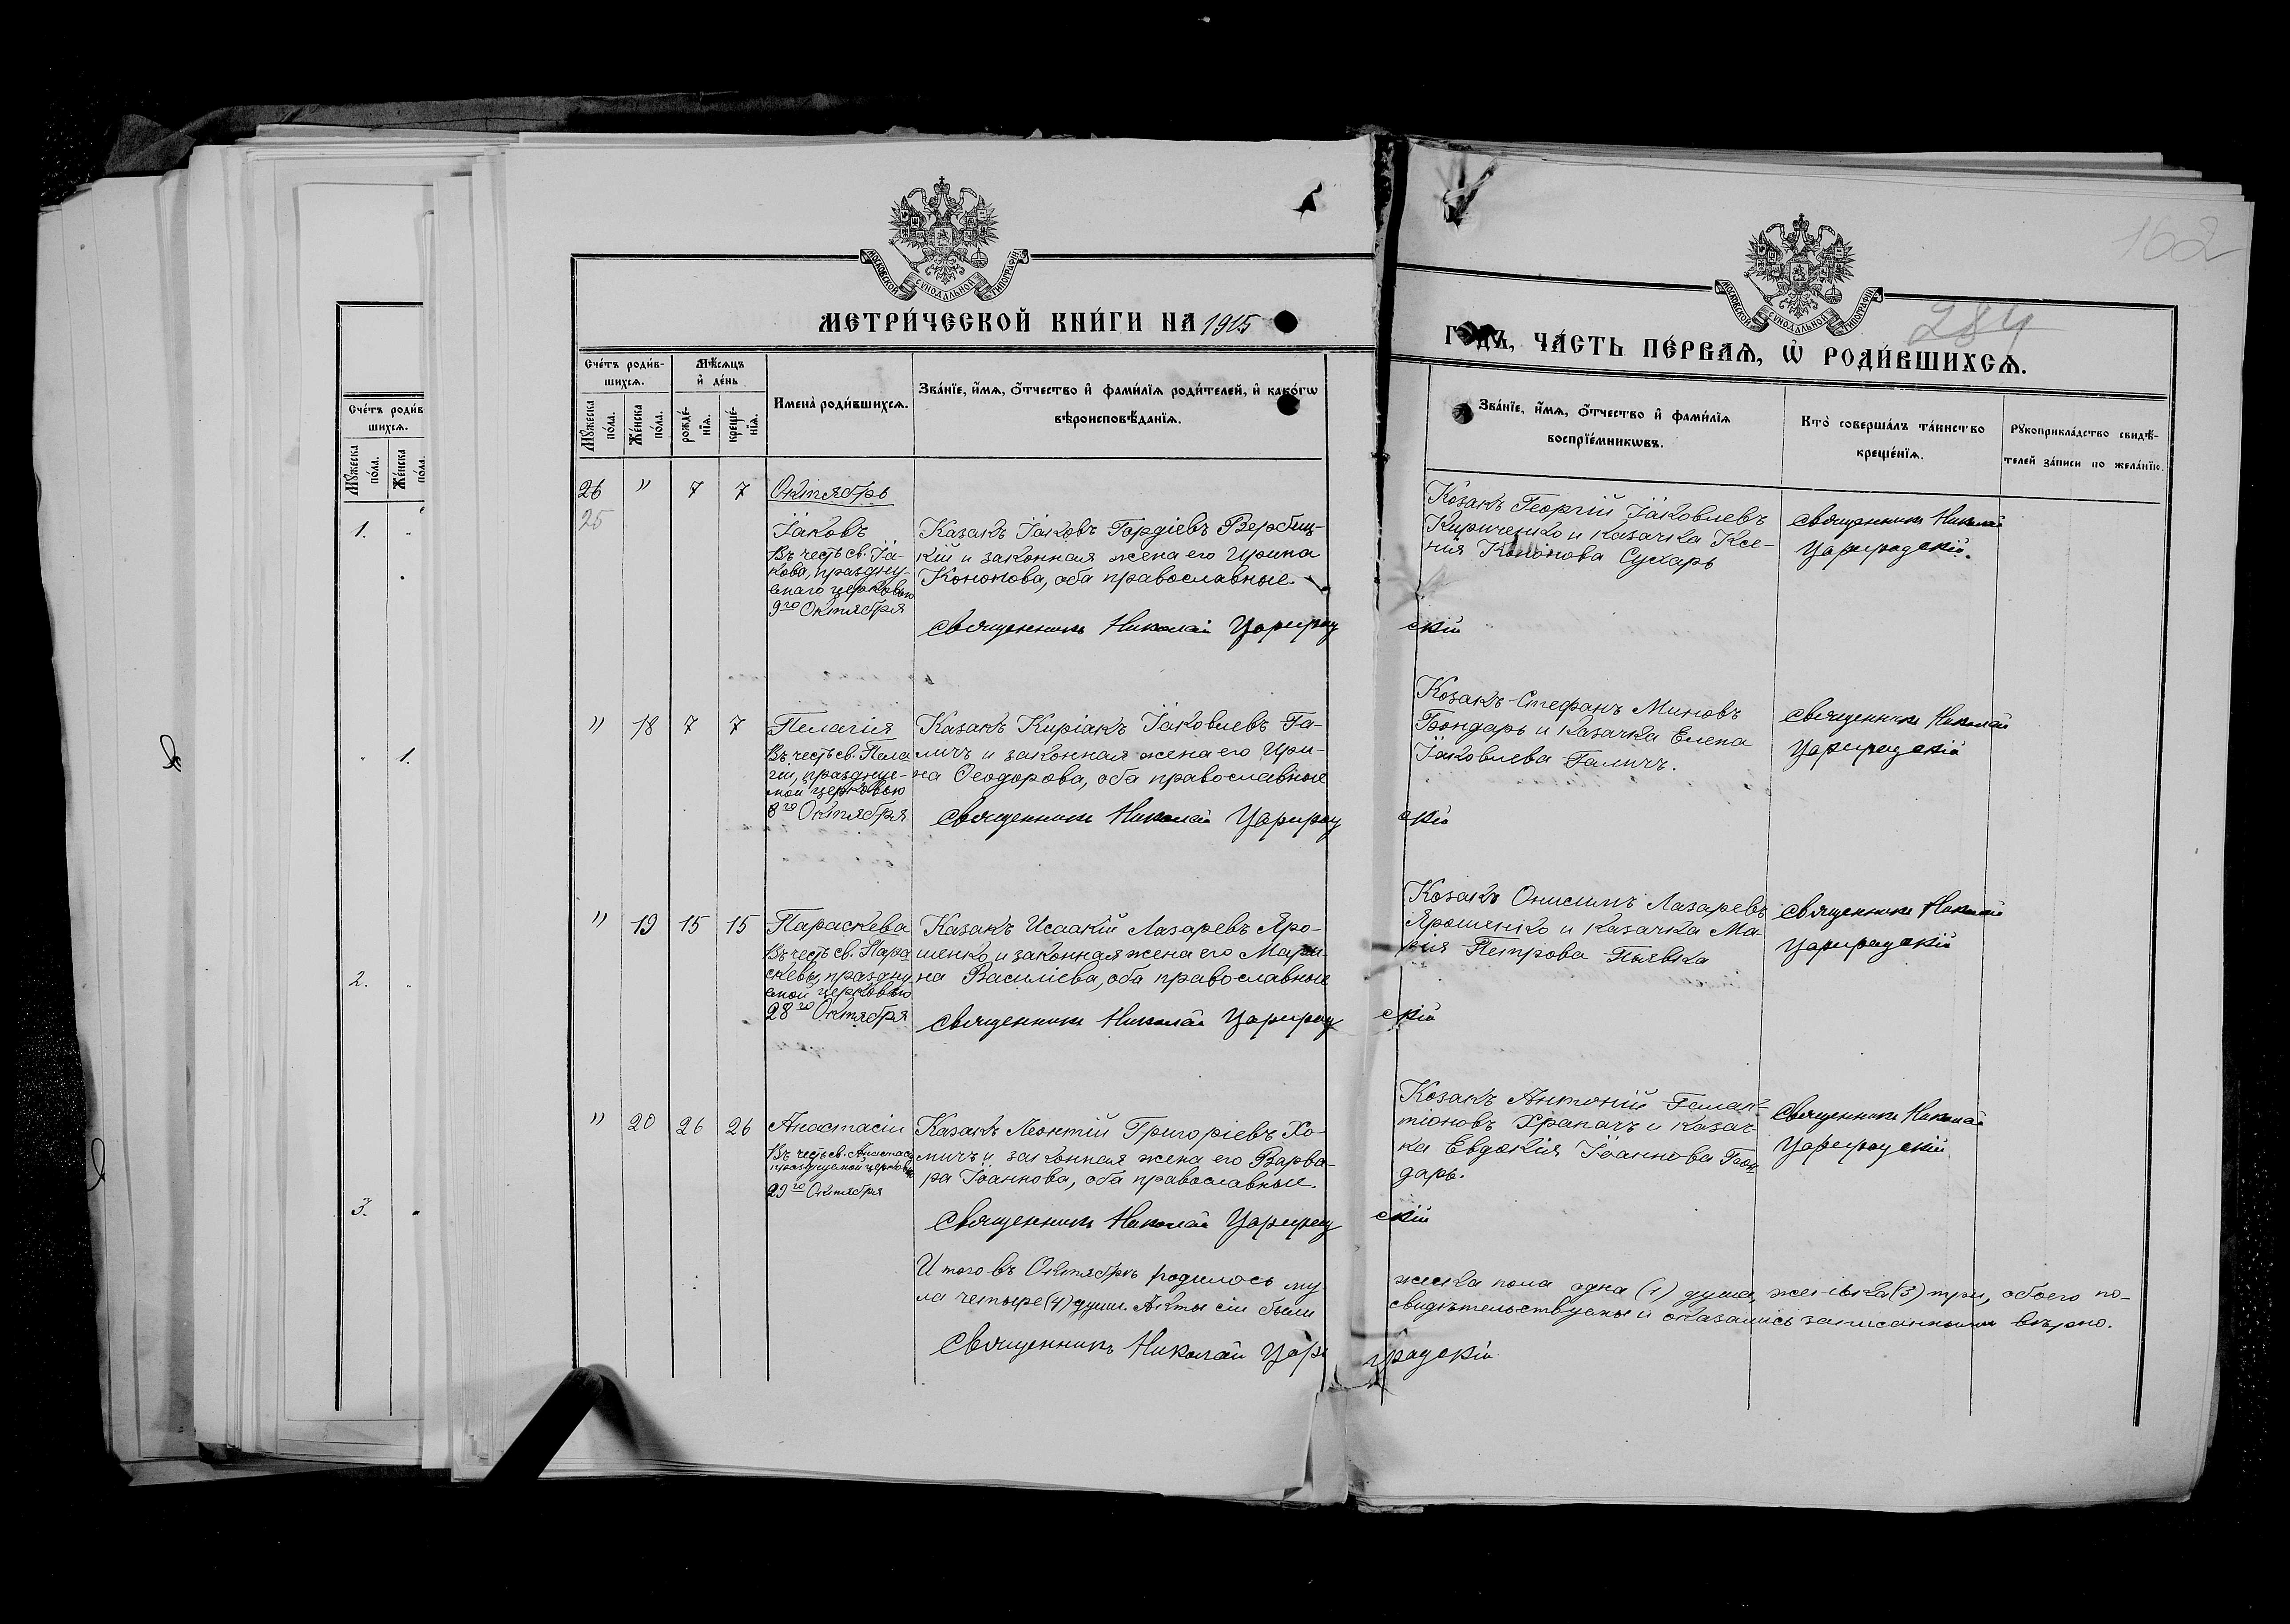 162
284
МОСКОВСКОЙ СѴНОДАЛЬНОЙ ТИПОГРАФІИ
МОСКОВСКОЙ СѴНОДАЛЬНОЙ ТИПОГРАФІИ
МЕТРИ́ЧЕСКОЙ КНИ́ГИ НА 1915
ГОДЪ, ЧА́СТЬ ПЕ́РВАѦ, Ѡ҆ РОДИ́ВШИХСѦ.
Сче́тъ роди́в-
шихсѧ.
Мꙋ́жеска по́ла.
Же́нска по́ла.
Мѣ́сѧцъ
и҆ де́нь
рожде́-нїѧ.
креще́-нїѧ.
Имена̀ роди́вшихсѧ.
Зва́нїе, и҆́мѧ, ѻ҆́тчество и҆ фами́лїѧ роди́телей, и҆ како́гѡ
вѣроисповѣ́данїѧ.
Зва́нїе, и҆́мѧ, ѻ҆́тчество и҆ фами́лїѧ
воспрїе́мникѡвъ.
Кто̀ соверша́лъ та́инство
креще́нїѧ.
Рꙋкоприкла́дство свидѣ́-
телей за́писи по жела́нїю.
Сче́тъ роди́в
шихсѧ.
Мꙋ́жеска по́ла.
Же́нска по́ла.
1. "
" 1.
2. "
3. "
26 " 7 7 Октябрь
25
Іаковъ
Въ честь св. Іа-
кова, праздну-
емаго церковью
9го Октября
Казакъ Іаковъ Гордіевъ Вербиц-
кій и законная жена его Ирина
Кононова, оба православные.
Священникъ Николай Цариград
скій
Козакъ Георгій Іаковлевъ
Кириченко и казачка Ксе-
нія Кононова Сухарь
Священникъ Николай
Цариградскій.
" 18 7 7 Пелагія
Въ честь св. Пела-
гіи, празднуе-
мой церковью
8го Октября
Казакъ Киріакъ Іаковлевъ Га-
личъ и законная жена его Ири-
на Ѳеодорова, оба православные
Священникъ Николай Цариград
скій
Козакъ Стефанъ Миновъ
Бондарь и казачка Елена
Іаковлева Галичъ.
Священникъ Николай
Цариградскій
" 19 15 15 Параскева
Въ честь св. Пара
скевы, праздну
емой церковью
28го Октября
Казакъ Исаакій Лазаревъ Яро-
шенко и законная жена его Мари-
на Василіева, оба православные
Священникъ Николай Цариград
скій
Козакъ Онисимъ Лазаревъ
Ярошенко и казачка Ма-
рія Петрова Пьявка
Священникъ Николай
Цариградскій
" 20 26 26 Анастасіи
Въ честь св. Анастасіи
празднуемой церковью
29го Октября
Казакъ Леонтій Григоріевъ Хо-
мичъ и законная жена его Варва-
ра Іоаннова, оба православные.
Священникъ Николай Цариград
скій
Козакъ Антоній Галак-
тіоновъ Храпачъ и казач-
ка Евдокія Іоаннова Бон-
дарь.
Священникъ Николай
Цариградскій
Итого въ Октябрѣ родилось му
жеска пола одна (1) душа, женска (3) три, обоего по-
ла четыре (4) души. Акты сіи были
свидѣтельствуемы и оказались записанными вѣрно.
Священникъ Николай Цари
градскій